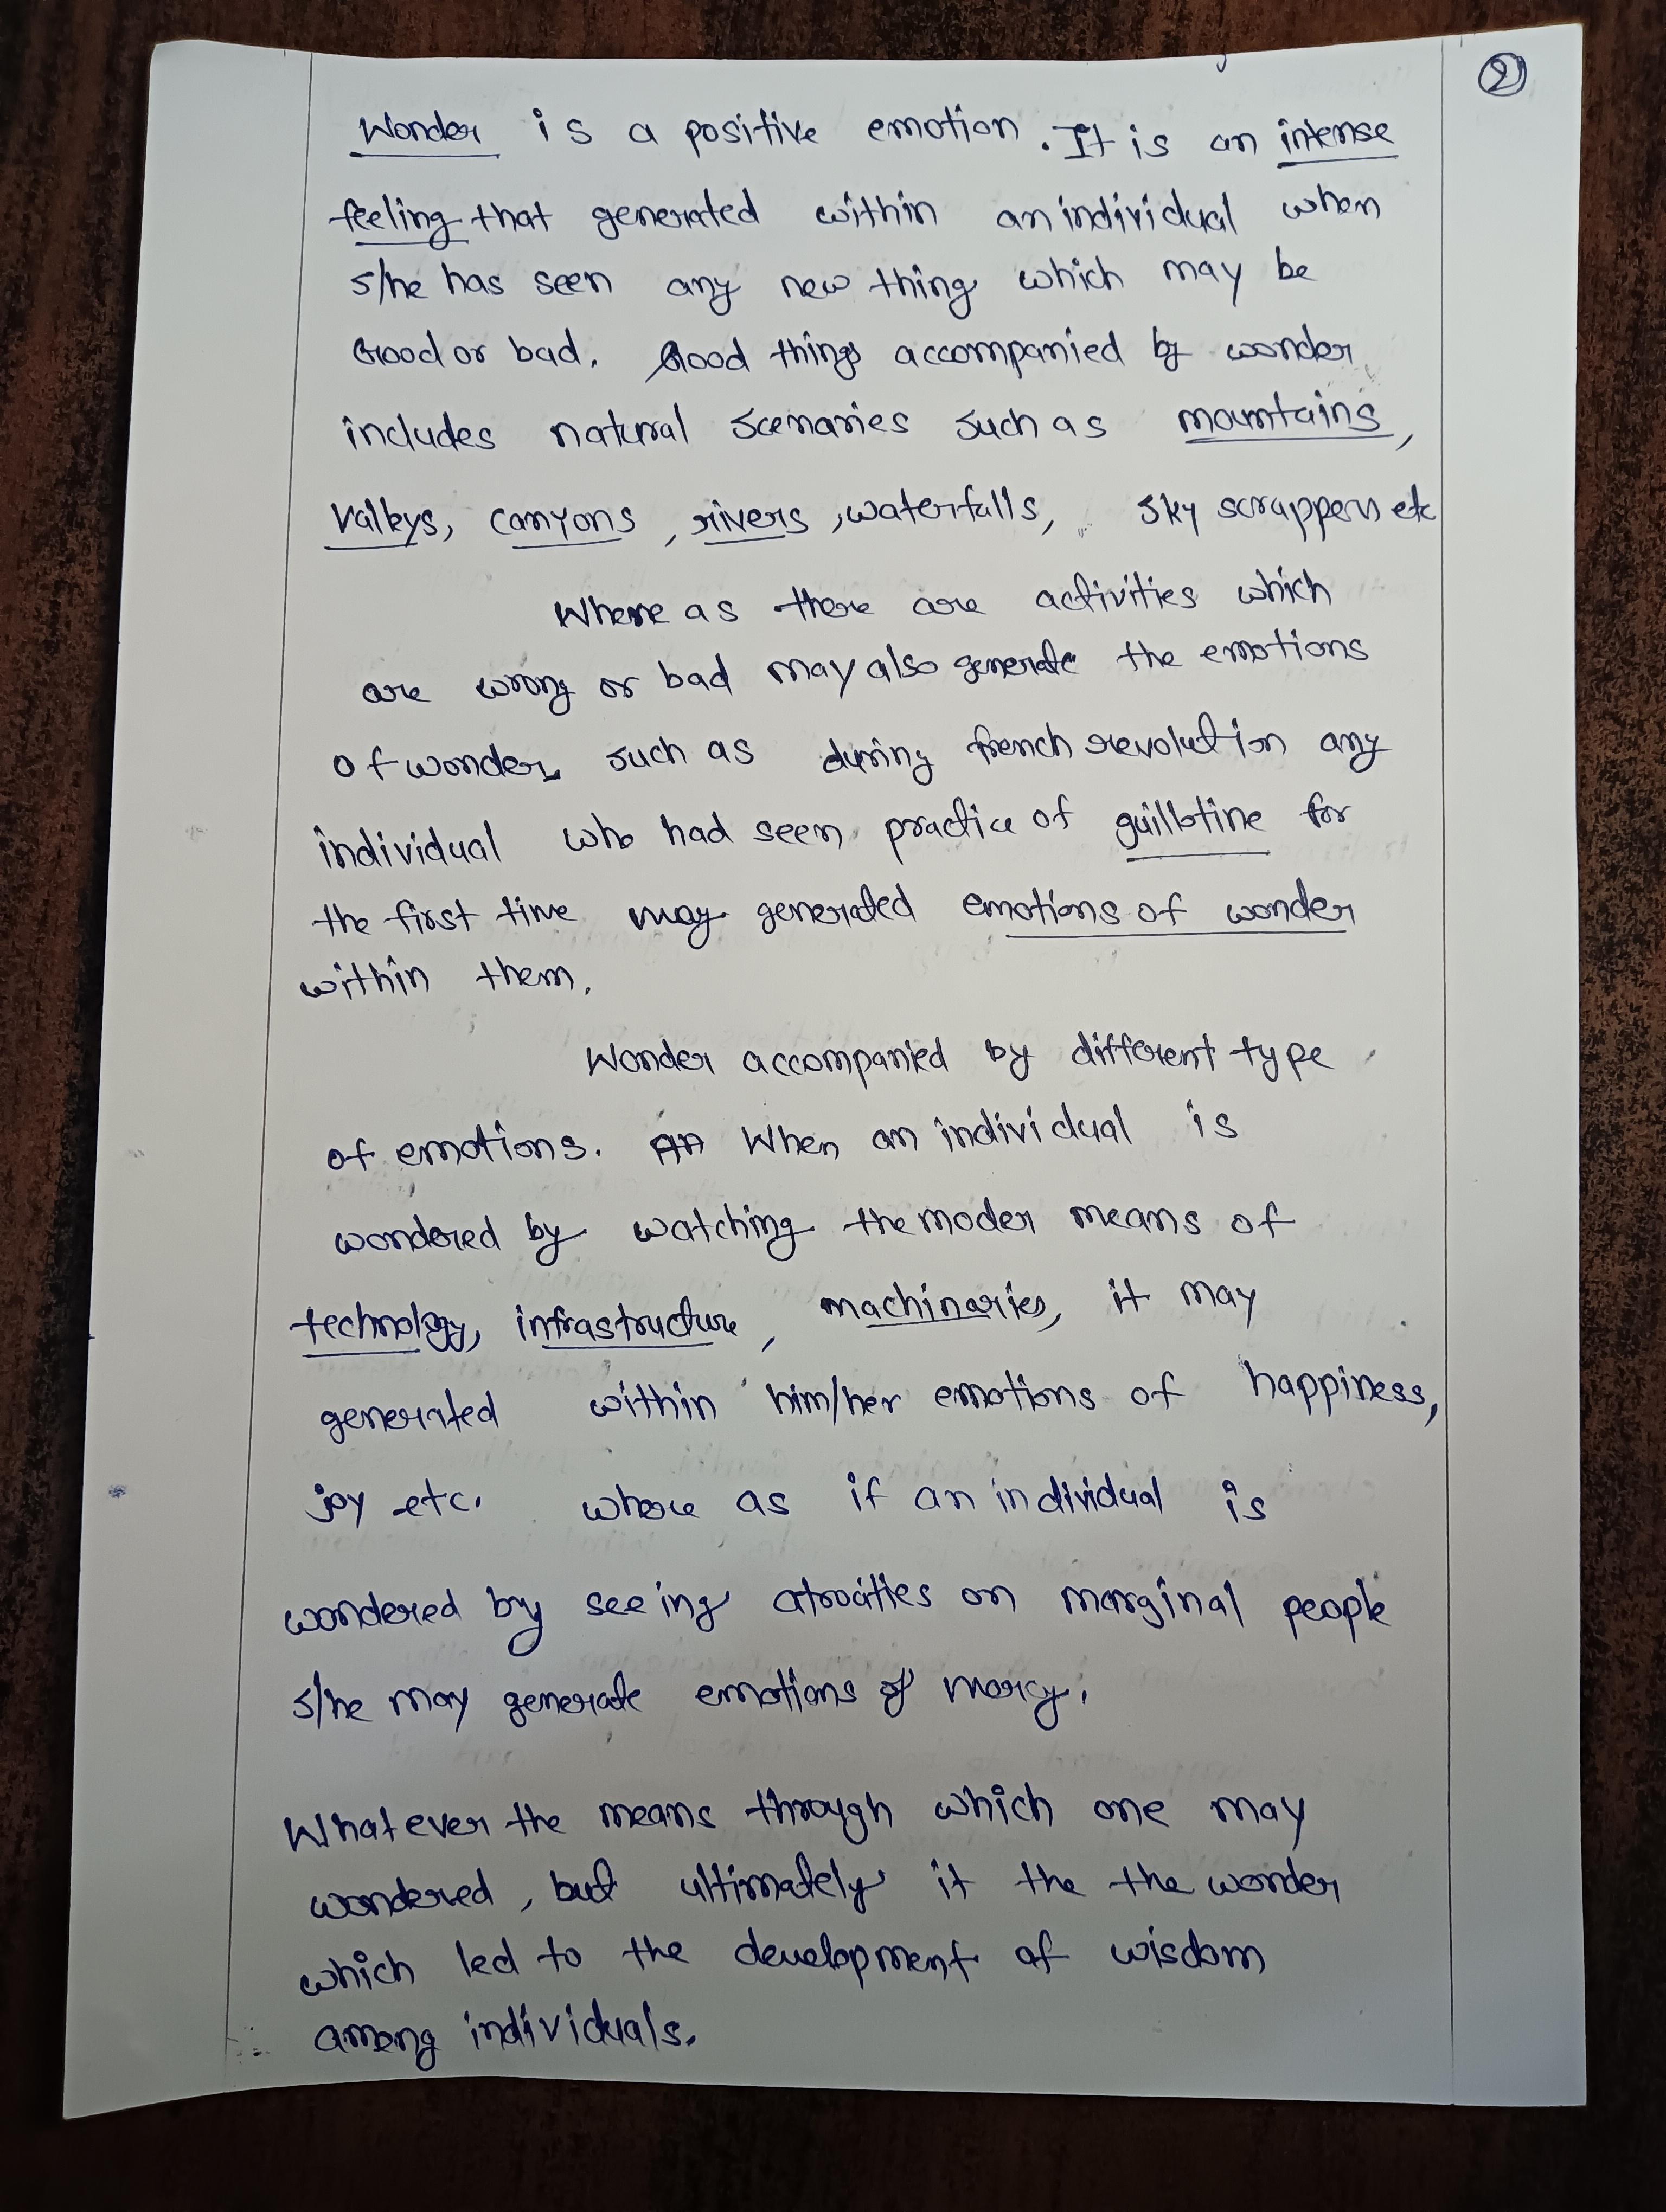 2
Wonder is a positive emotion. It is an intense
feeling that generated within an individual when
s/he has seen any new thing which may be
Good or bad. Good things accompanied by wonder
includes natural scenaries such as mountains,
Valleys, canyons, rivers, waterfalls, sky scrappers etc
Where as there are activities which
are wrong or bad may also generate the emotions
of wonder such as during french revolution any
individual who had seen practice of guillotine for
the first time may generated emotions of wonder
within them.
Wonder accompanied by different type
of emotions. When an individual is
wondered by watching the moder means of
technology, infrastructure, machinaries, it may
generated within him/her emotions of happiness,
joy etc. where as if an individual is
wondered by seeing atrocities on marginal people
s/he may generate emotions of mercy.
Whatever the means through which one may
wondered, but ultimately it the the wonder
which led to the development of wisdom
among individuals.